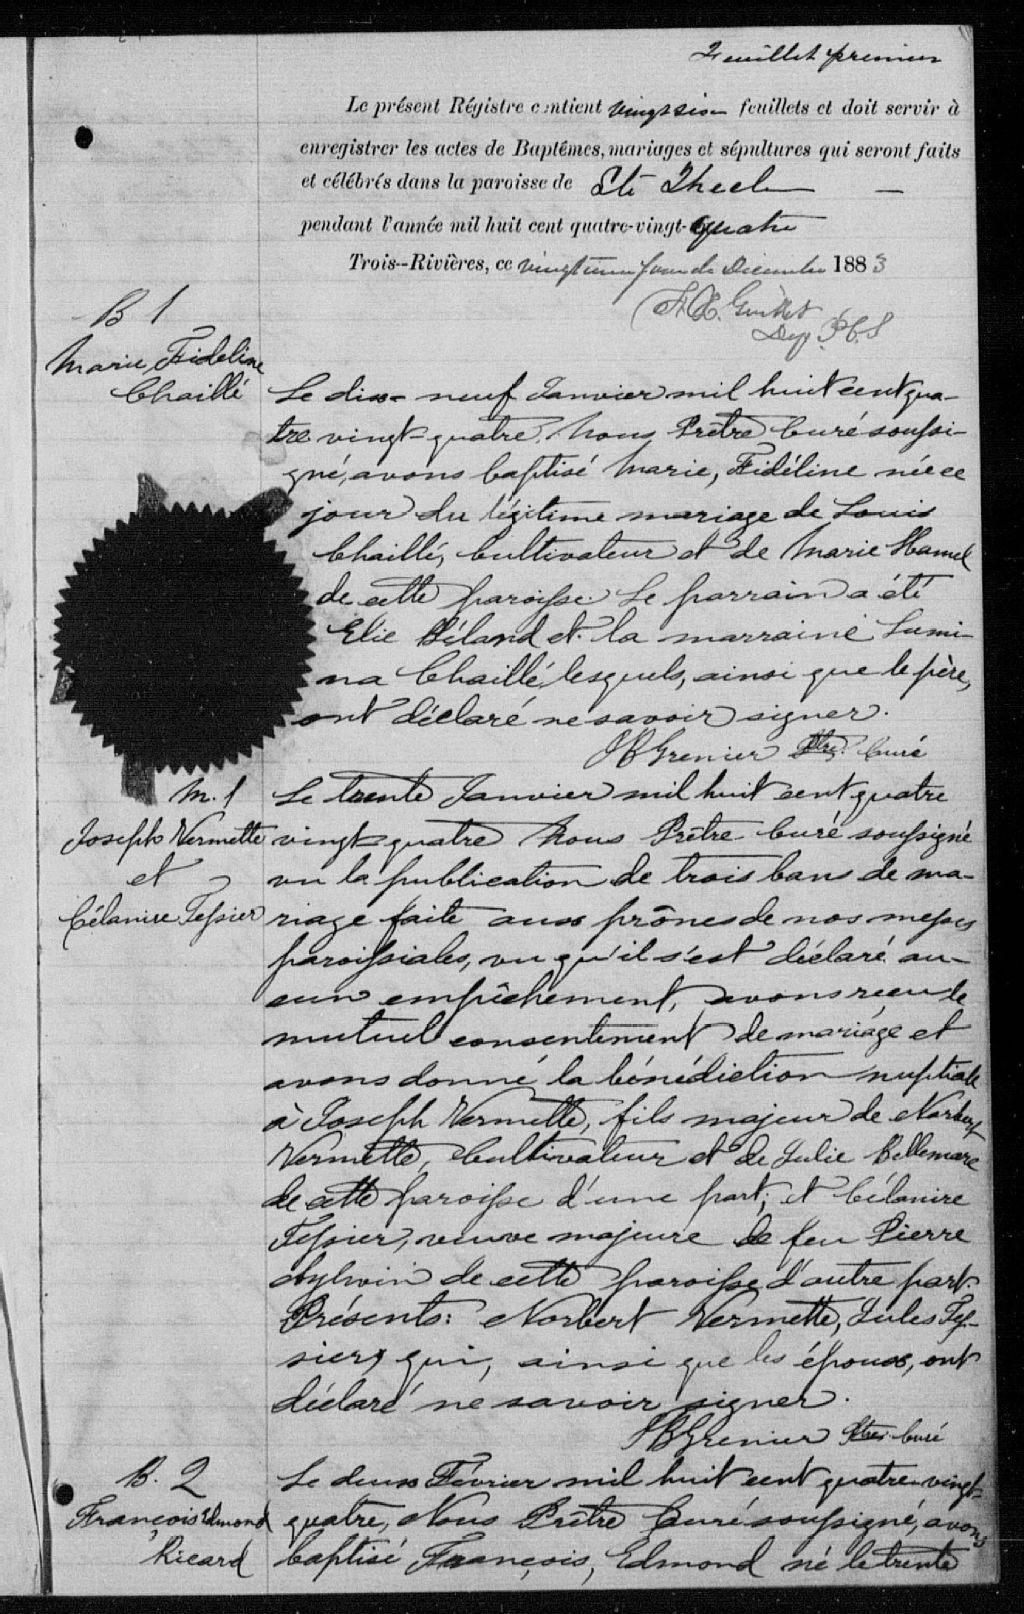 Feuillet premier
Le présent Régistre contient vingt six feuillets et doit servir à
enregistrer les actes de Baptêmes, mariages et sépultures qui seront faits
et célébrés dans la paroisse de Ste Thecle —
pendant l'année mil huit cent quatre-vingt-quatre
Trois--Rivières, ce vingt unieme jour de Décembre 1883
Dep P.C.S
B 1
Marie, Fideline
Chaillé
Le dix-neuf Janvier mil huit cent qua-
tre vingt-quatre, Nous Prêtre Curé soussi-
gné, avons baptisé Marie, Fidéline née ce
jour du légitime mariage de Louis
Chaillé, Cultivateur et de Marie Hamel
de cette paroisse. Le parrain a été
Elie Béland et la marraine Lumi-
na Chaillé, lesquels, ainsi que le père,
ont déclaré ne savoir signer.
JBGrenier Ptre. Curé
M. 1
Joseph Vermette
et
Célanire Tessier
Le trente Janvier mil huit cent quatre
vingt-quatre Nous Prêtre Curé soussigné
vu la publication de trois bans de ma-
riage faite aux prônes de nos messes
paroissiales, vu qu'il s'est déclaré au-
cun empêchement, avons reçu le
mutuel consentement de mariage et
avons donné la bénédiction nuptiale
à Joseph Vermette, fils majeur de Norbert
Vermette, Cultivateur et de Julie Bellemare
de cette paroisse d'une part; et Célanire
Tessier, veuve majeure de feu Pierre
Aylwin de cette paroisse d'autre part.
Présents: Norbert Vermette, Jules Tes-
sier, qui, ainsi que les époux, ont
déclaré ne savoir signer.
JBGrenier Ptre. Curé
B. 2
François Edmond
Ricard
Le deux Février mil huit cent quatre-vingt-
quatre, Nous Prêtre Curé soussigné, avons
baptisé François, Edmond né le trente